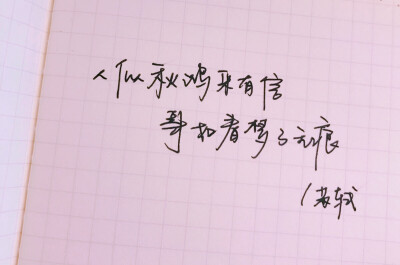 人似秋鸿来有信
事如春梦了无痕
/苏轼